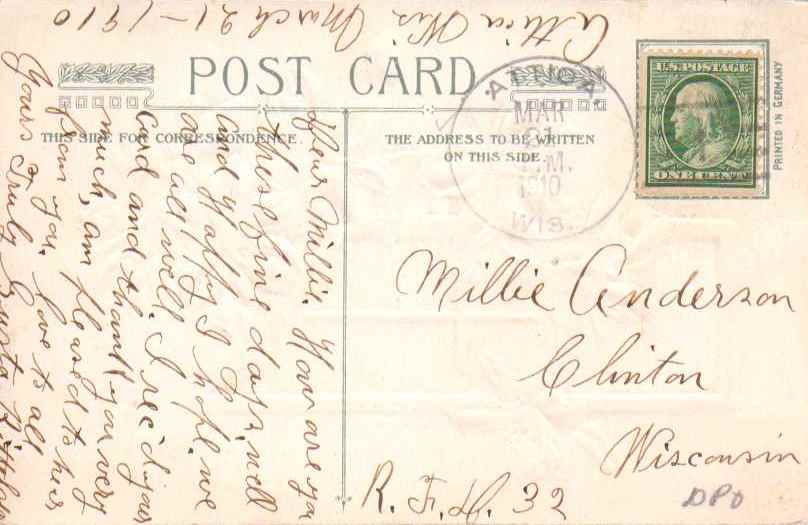 Attica Wis March 21-1910
POST CARD
THIS SIDE FOR CORRESPONDENCE.
THE ADDRESS TO BE WRITTEN
ON THIS SIDE.
Dear Millie. How are you
these fine days, well
and Happy I hope. we
are all well. I rec'd your
card and thank you very
much, am pleased to hear
from you. love to all
Yours Truly
ATTICA
MAR
21
M.
1910
WIS.
U.S. POSTAGE
ONE CENT
PRINTED IN GERMANY
Millie Anderson
Clinton
Wisconsin
R. F. D. 32
DPO